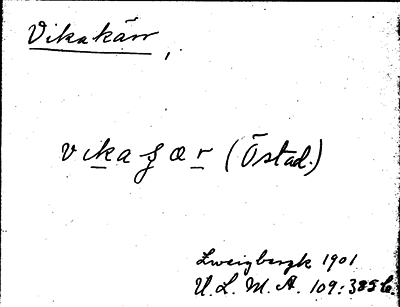 Vikakärr,
vikaʃær (Östad.)
Zweigbergk 1901
U.L.M.A. 109:385 b.